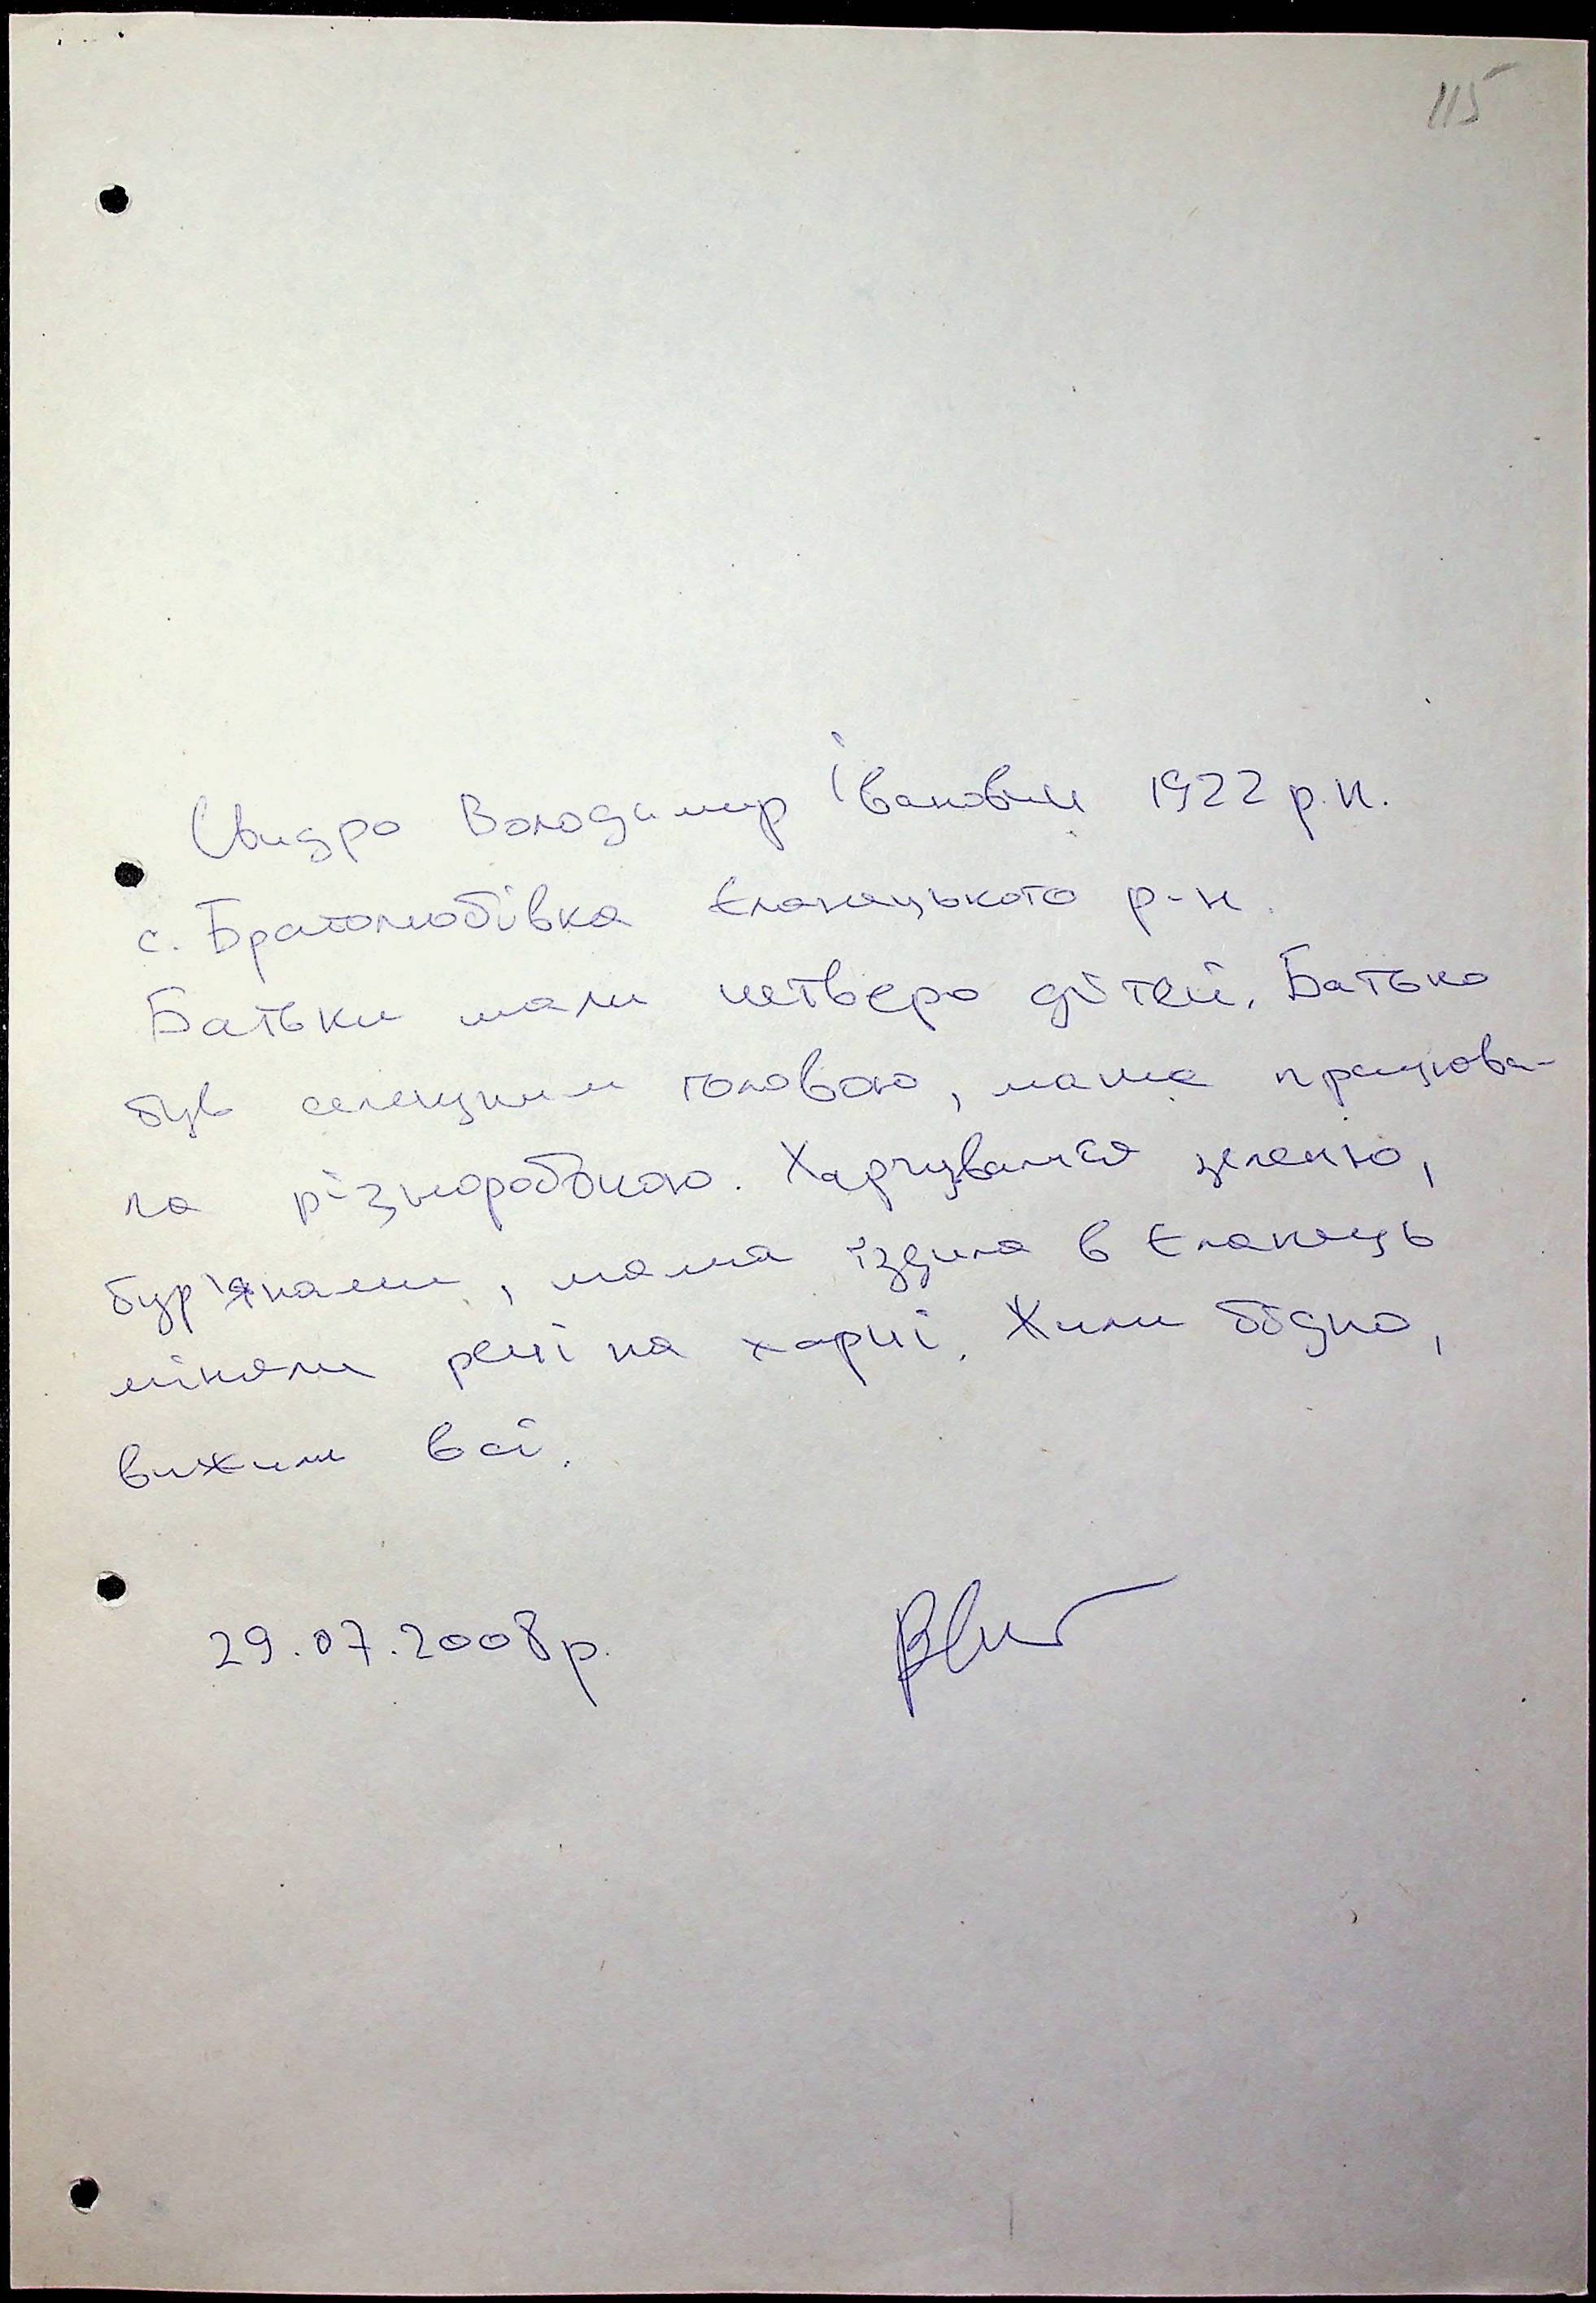 115
Свидро Володимир Іванович 1922 р.н.
с. Братолюбівка Єланецького р-н.
Батьки мали четверо дітей. Батько
був селещним головою, мама працюва-
ла різноробочою. Харчувалися зеленю,
бур'янами, мама їздила в Єланець
міняли речі на харчі. Жили бідно,
вижили всі.
29.07.2008р.